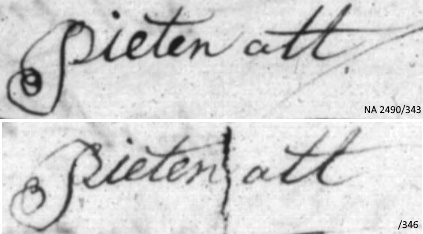 Pieten att
NA 2490/343
Pieten att
/346